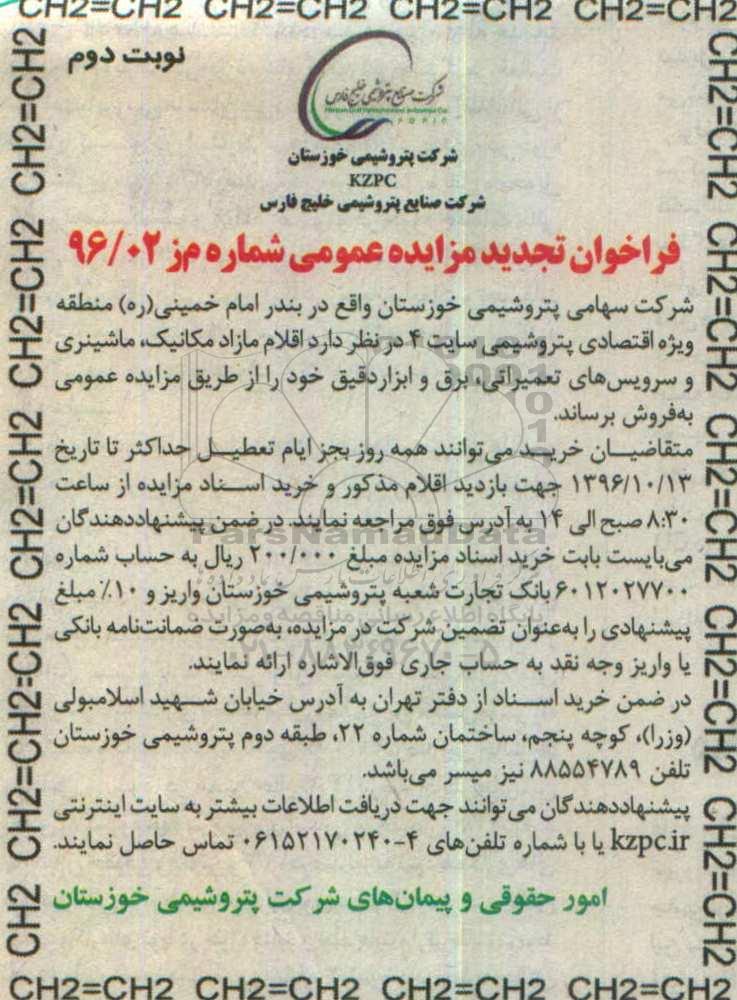 CH2=CH2 CH2=CH2 CH2=CH2 CH2=CH2
نوبت دوم
شرکت صنایع پتروشیمی خلیج فارس
شرکت پتروشیمی خوزستان
KZPC
شرکت صنایع پتروشیمی خلیج فارس
فراخوان تجدید مزایده عمومی شماره م‌ز ۹۶/۰۲
شرکت سهامی پتروشیمی خوزستان واقع در بندر امام خمینی(ره) منطقه
ویژه اقتصادی پتروشیمی سایت ۴ در نظر دارد اقلام مازاد مکانیک، ماشینری
و سرویس‌های تعمیراتی، برق و ابزاردقیق خود را از طریق مزایده عمومی
به‌فروش برساند.
متقاضیان خرید می‌توانند همه روز بجز ایام تعطیل حداکثر تا تاریخ
۱۳۹۶/۱۰/۱۳ جهت بازدید اقلام مذکور و خرید اسناد مزایده از ساعت
۸:۳۰ صبح الی ۱۴ به آدرس فوق مراجعه نمایند. در ضمن پیشنهاددهندگان
می‌بایست بابت خرید اسناد مزایده مبلغ ۲۰۰/۰۰۰ ریال به حساب شماره
۶۰۱۲۰۲۷۷۰۰ بانک تجارت شعبه پتروشیمی خوزستان واریز و ۱۰٪ مبلغ
پیشنهادی را به‌عنوان تضمین شرکت در مزایده، به‌صورت ضمانت‌نامه بانکی
یا واریز وجه نقد به حساب جاری فوق‌الاشاره ارائه نمایند.
در ضمن خرید اسناد از دفتر تهران به آدرس خیابان شهید اسلامبولی
(وزرا)، کوچه پنجم، ساختمان شماره ۲۲، طبقه دوم پتروشیمی خوزستان
تلفن ۸۸۵۵۴۷۸۹ نیز میسر می‌باشد.
پیشنهاددهندگان می‌توانند جهت دریافت اطلاعات بیشتر به سایت اینترنتی
kzpc.ir یا با شماره تلفن‌های ۴-۰۶۱۵۲۱۷۰۲۴۰ تماس حاصل نمایند.
امور حقوقی و پیمان‌های شرکت پتروشیمی خوزستان
CH2=CH2 CH2=CH2 CH2=CH2 CH2=CH2
CH2 CH2=CH2=CH2 CH2=CH2 CH2=CH2 CH2=CH2
CH2=CH2 CH2=CH2 CH2=CH2 CH2=CH2 CH2=CH2
ParsNamadData